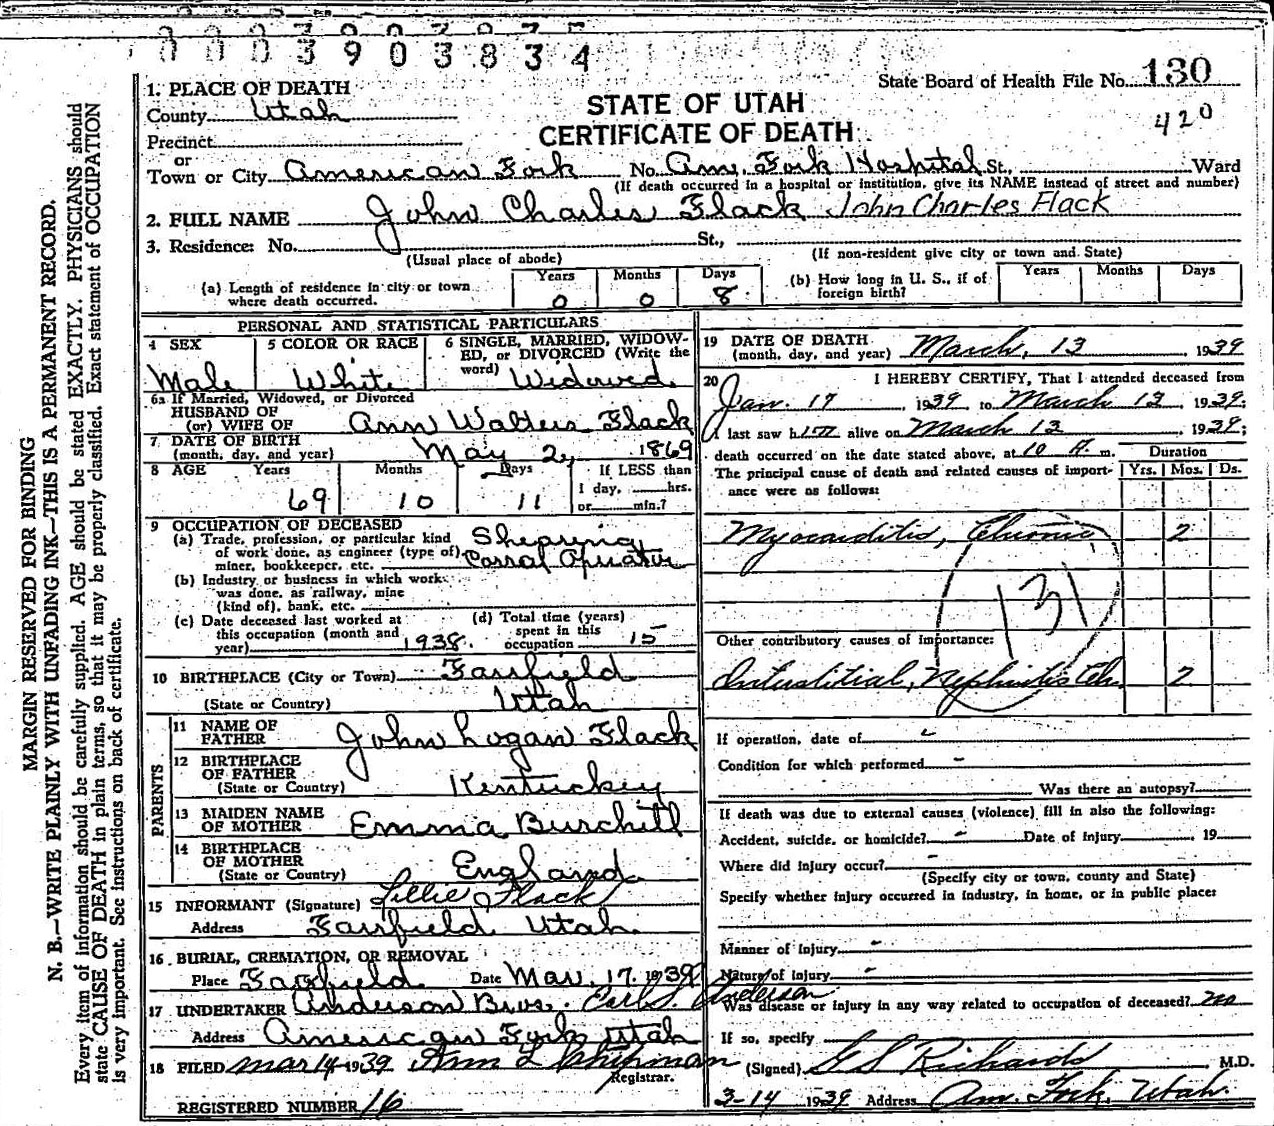 0003903834
State Board of Health File No. 130
420
STATE OF UTAH
CERTIFICATE OF DEATH
1. PLACE OF DEATH
County Utah
Precinct
or
Town or City American Fork No. Am. Fork Hospital St., Ward
(If death occurred in a hospital or institution, give its NAME instead of street and number)
2. FULL NAME John Charles Flack John Charles Flack
3. Residence: No. St.,
(Usual place of abode) (If non-resident give city or town and State)
(a) Length of residence in city or town where death occurred. Years 0 Months 0 Days 8
(b) How long in U. S., if of foreign birth? Years Months Days
PERSONAL AND STATISTICAL PARTICULARS
4 SEX Male
5 COLOR OR RACE White
6 SINGLE, MARRIED, WIDOWED, or DIVORCED (Write the word) Widowed
6a If Married, Widowed, or Divorced
HUSBAND OF
(or) WIFE OF Ann Walters Flack
7 DATE OF BIRTH
(month, day, and year) May 2, 1869
8 AGE Years 69 Months 10 Days 11 If LESS than
1 day, hrs.
or min.?
9 OCCUPATION OF DECEASED
(a) Trade, profession, or particular kind
of work done, as engineer (type of)
miner, bookkeeper, etc. Shearing Corral Operator
(b) Industry or business in which work
was done, as railway, mine
(kind of), bank, etc.
(c) Date deceased last worked at
this occupation (month and
year) 1938.
(d) Total time (years)
spent in this
occupation 15
10 BIRTHPLACE (City or Town) Fairfield
(State or Country) Utah
PARENTS
11 NAME OF
FATHER John Logan Flack
12 BIRTHPLACE
OF FATHER
(State or Country) Kentuckey
13 MAIDEN NAME
OF MOTHER Emma Burchill
14 BIRTHPLACE
OF MOTHER
(State or Country) England
15 INFORMANT (Signature) Lillie Flack
Address Fairfield Utah
16 BURIAL, CREMATION, OR REMOVAL
Place Fairfield Date Mar. 17. 1939
17 UNDERTAKER Anderson Bros. Earl S. Anderson
Address American Fork Utah
18 FILED Mar 14 1939 Ann L Chipman
Registrar.
REGISTERED NUMBER 16
19 DATE OF DEATH
(month, day, and year) March, 13 1939
20 I HEREBY CERTIFY, That I attended deceased from
Jan. 17, 1939, to March 13, 1939;
I last saw him alive on March 13 1939;
death occurred on the date stated above, at 10 A. m.
Duration
The principal cause of death and related causes of importance were as follows: Yrs. Mos. Ds.
Myocarditis, Chronic 2
131
Other contributory causes of importance:
Interstitial, Nephritis Ch. 2
If operation, date of -
Condition for which performed -
Was there an autopsy?
If death was due to external causes (violence) fill in also the following:
Accident, suicide, or homicide? - Date of injury 19
Where did injury occur? -
(Specify city or town, county and State)
Specify whether injury occurred in industry, in home, or in public place:
Manner of Injury -
Nature of Injury -
Was disease or injury in any way related to occupation of deceased? no
If so, specify
(Signed) G S Richards M.D.
3-14 1939 Address Am. Fork, Utah.
MARGIN RESERVED FOR BINDING
N. B.—WRITE PLAINLY WITH UNFADING INK—THIS IS A PERMANENT RECORD.
Every item of information should be carefully supplied. AGE should be stated EXACTLY. PHYSICIANS should
state CAUSE OF DEATH in plain terms, so that it may be properly classified. Exact statement of OCCUPATION
is very important. See instructions on back of certificate.